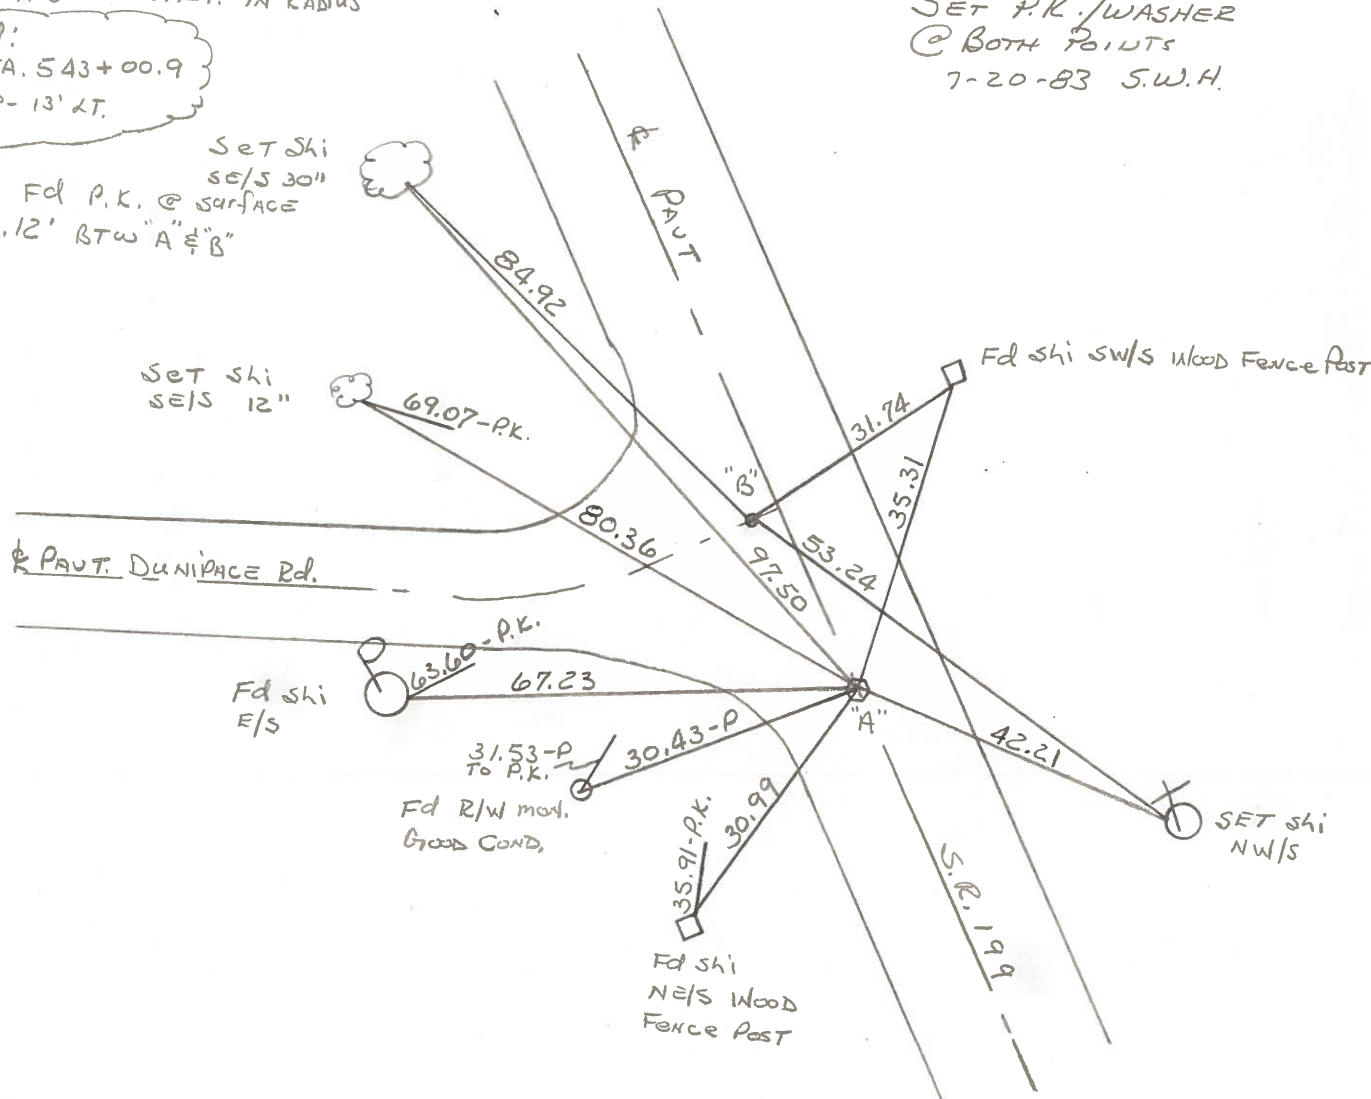 IN RADIUS
A. 543+00.9
- 13' LT.
SET P.K./WASHER
@ BOTH POINTS
7-20-83 S.W.H.
SET Shi
SE/S 30"
Fd P.K. @ SurfACE
.12' BTW "A" & "B"
℄ PAVT
84.92
SET Shi
SE/S 12"
69.07-P.K.
Fd Shi SW/S WOOD FENCE POST
31.74
35.31
"B"
80.36
97.50
53.24
℄ PAVT. DUNIPACE Rd.
63.60-P.K.
67.23
Fd Shi
E/S
"A"
42.21
31.53-P
TO P.K.
30.43-P
Fd R/W mon.
GOOD COND.
30.99
35.91-P.K.
SET Shi
NW/S
S.R. 199
Fd Shi
NE/S WOOD
FENCE POST